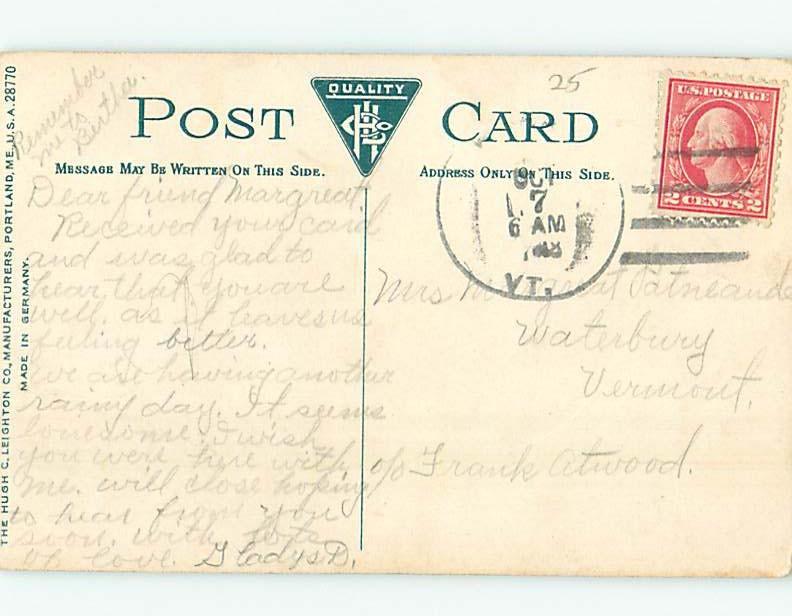 Remember
me to
Bertha.
25
QUALITY
POST CARD
MESSAGE MAY BE WRITTEN ON THIS SIDE.
ADDRESS ONLY ON THIS SIDE.
U.S. POSTAGE
2 CENTS 2
OCT
7
6 AM
VT.
Dear friend Margreat
Received your card
and was glad to
hear that you are
well. as it leaves us
feeling better.
we are having another
rainy day. It seems
lonesome. I wish
you were here with
me. will close hoping
to hear from you
soon. with lots
of love. Gladys D.
Mrs Margreat
Waterbury
Vermont.
c/o Frank Atwood.
THE HUGH C. LEIGHTON CO., MANUFACTURERS, PORTLAND, ME., U.S.A. 28770
MADE IN GERMANY.